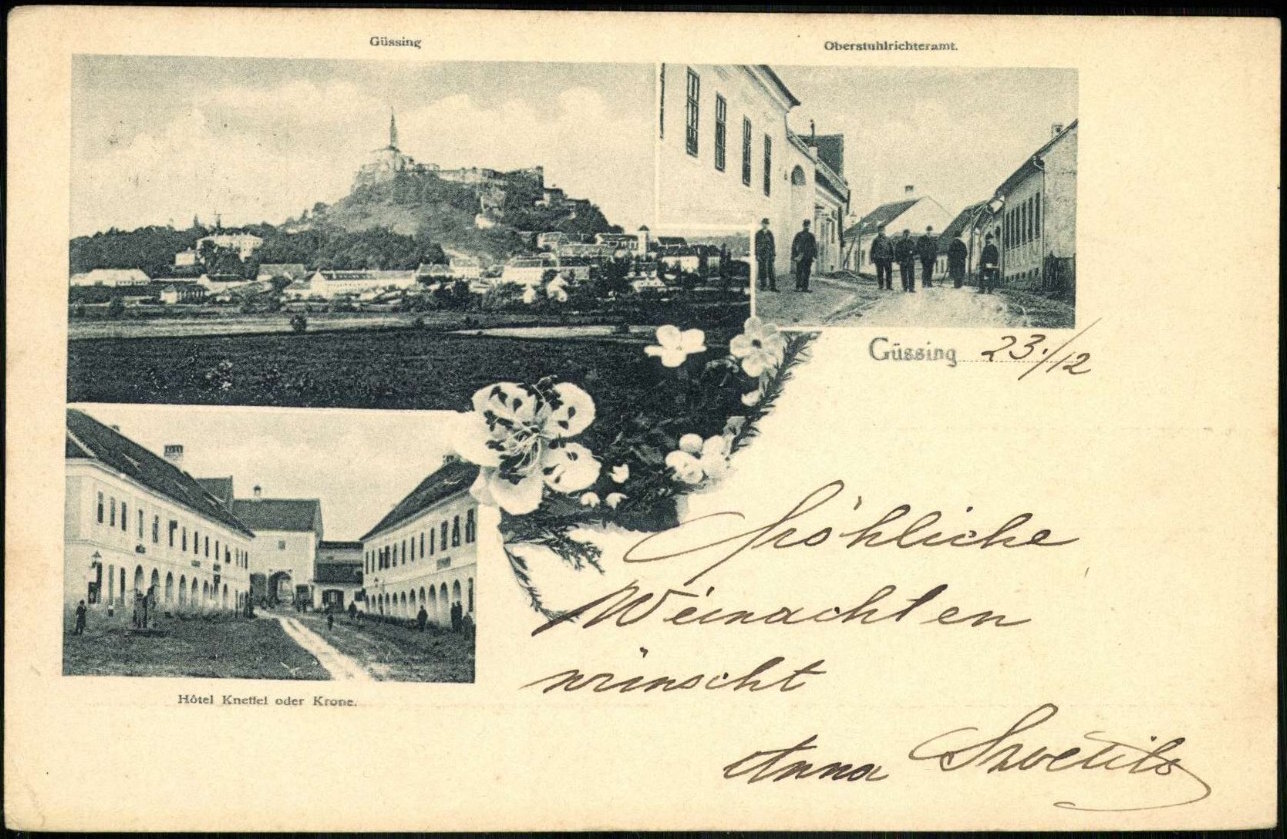 Güssing
Oberstuhlrichteramt.
Güssing 23./12
Hôtel Kneffel oder Krone.
Fröhliche
Weinachten
wünscht
Anna